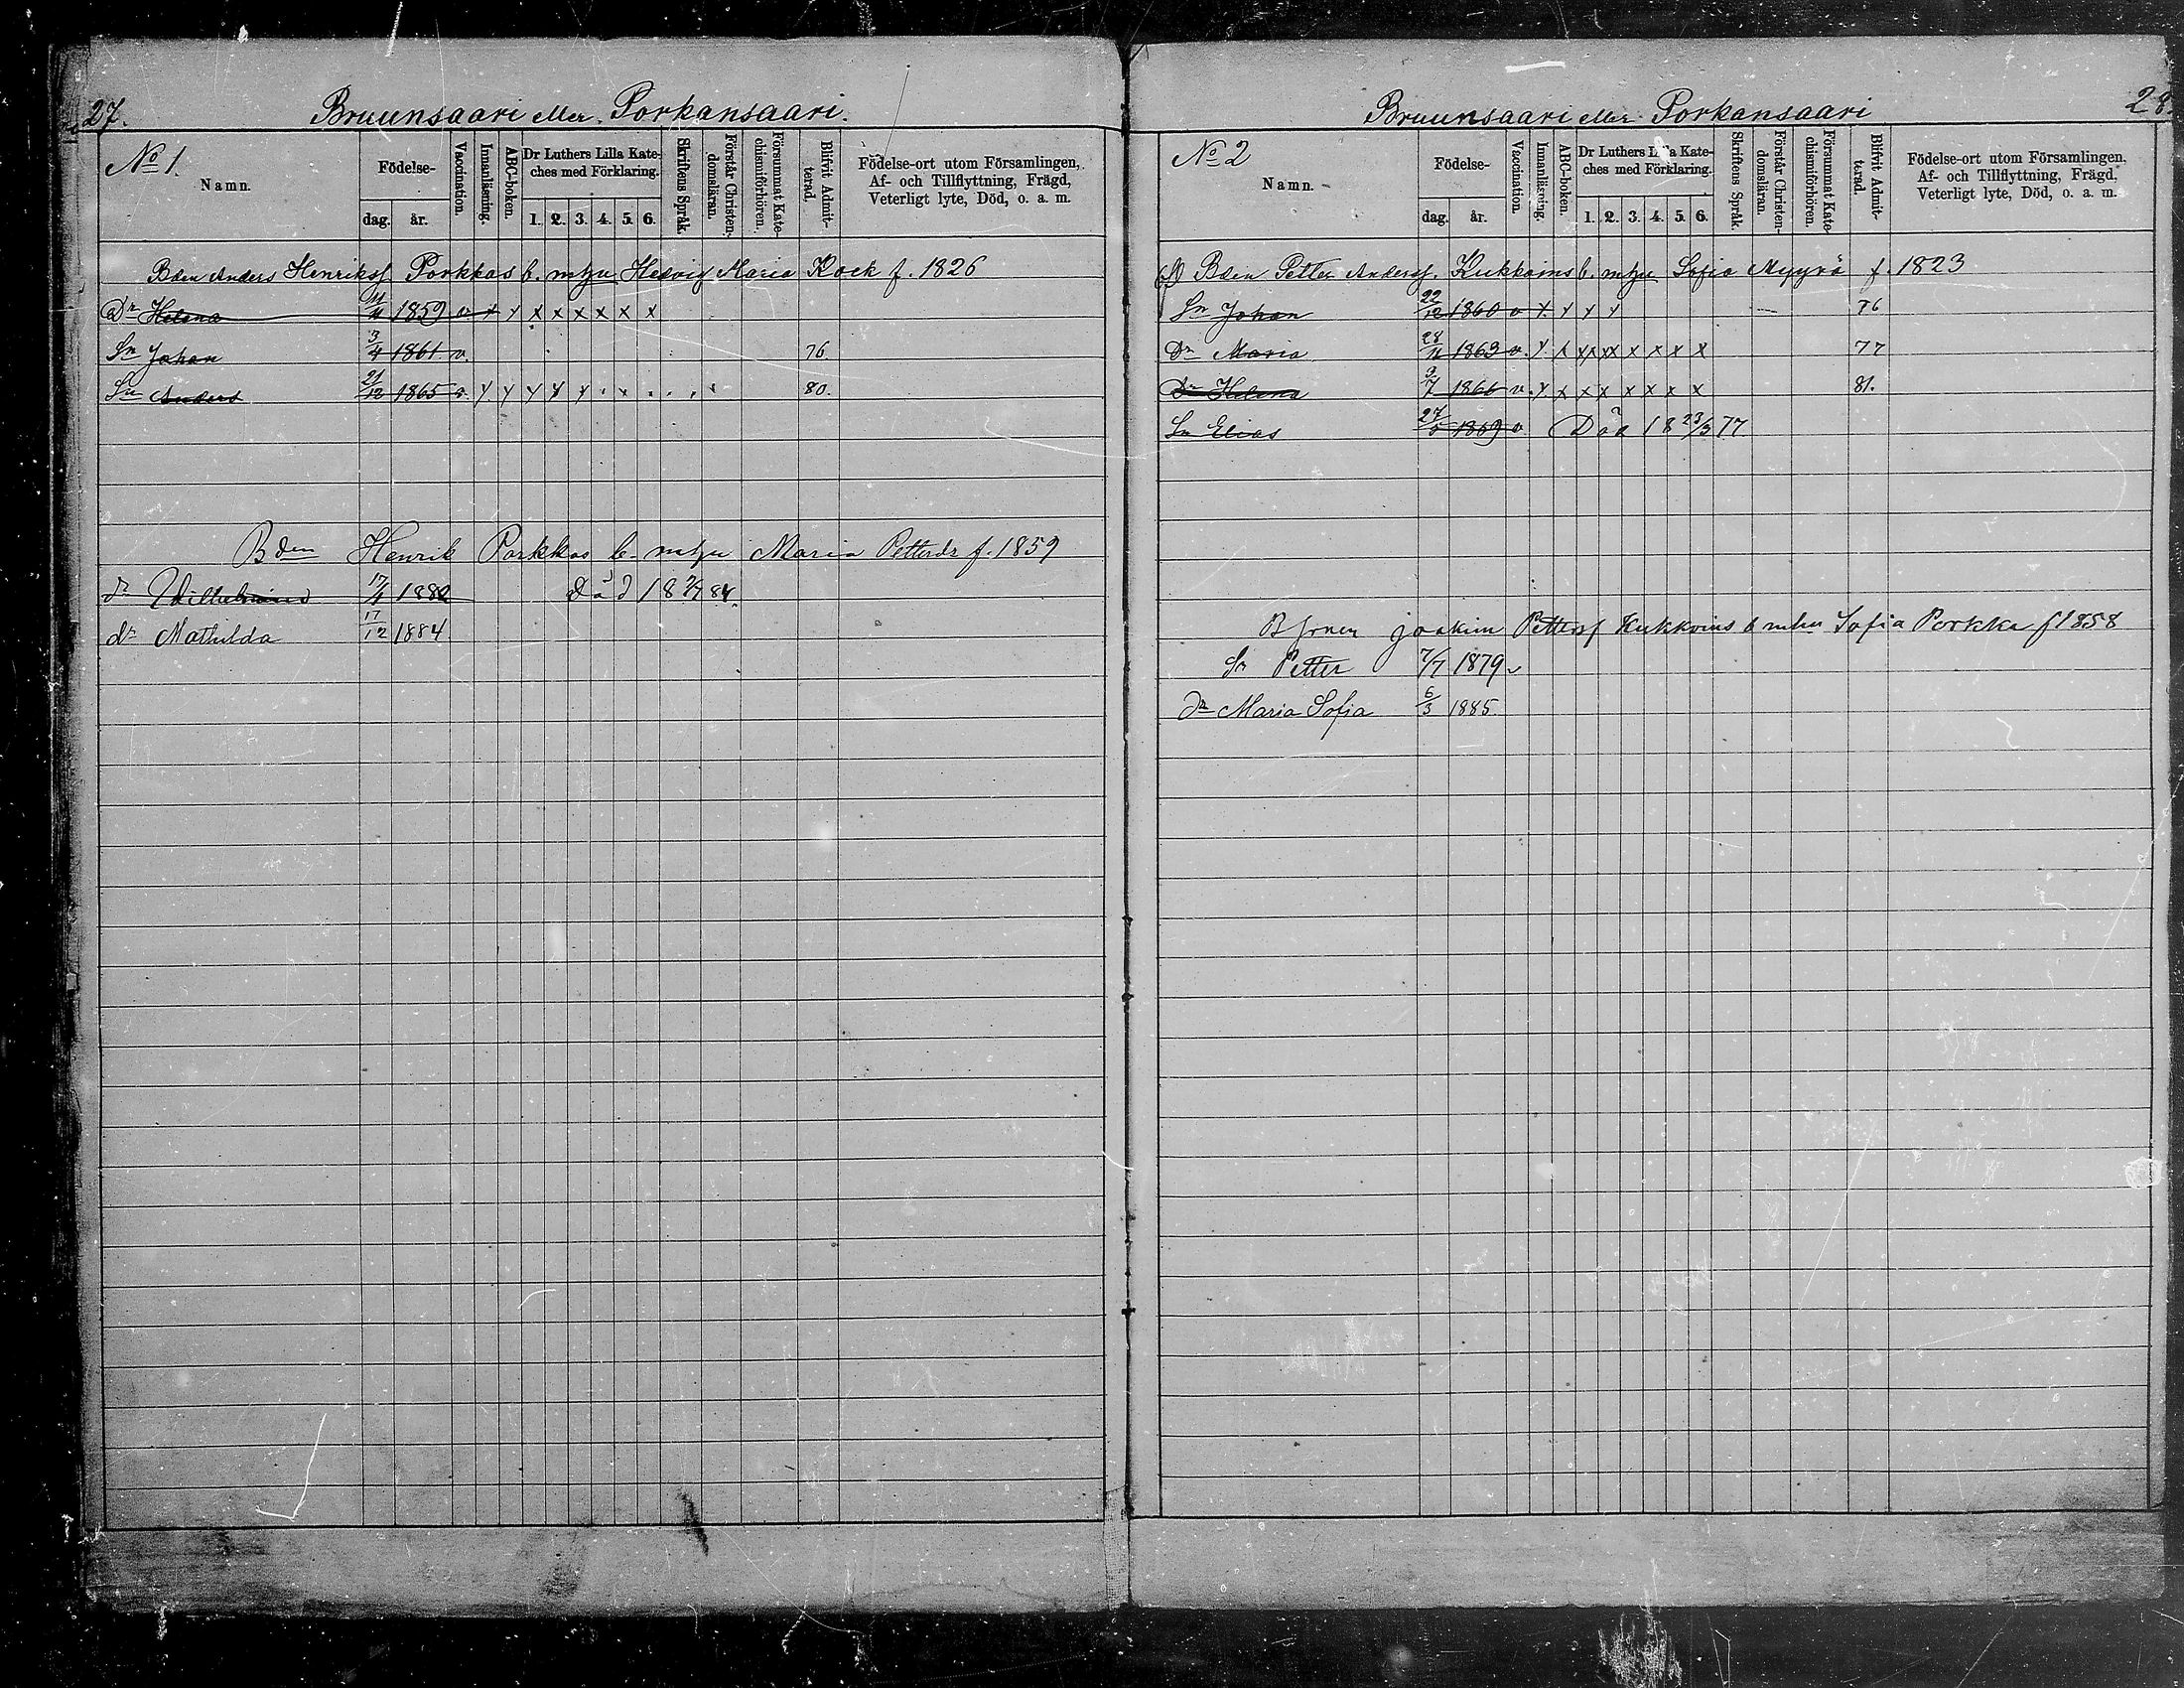 27.
Bruunsaari eller Porkansaari.
No 1.
Namn.
Födelse-
dag. år.
Vaccination.
Innanläsning.
ABC-boken.
Dr Luthers Lilla Kate-
ches med Förklaring.
1. 2. 3. 4. 5. 6.
Skriftens Språk.
Förstår Christen-
domsläran.
Försummat Kate-
chismiförhören.
Blifvit Admit-
terad.
Födelse-ort utom Församlingen,
Af- och Tillflyttning, Frägd,
Veterligt lyte, Död, o. a. m.
Bden Anders Henrikss Porkkas b. mhu Hedvig Maria Kock f. 1826
Dr Helena 11/11 1859 v x y x x x x x x
Sn Johan 3/4 1861 v. 76.
Sn Anders 21/12 1865 v. y y y y y 80.
Bden Henrik Porkkas b. mhu Maria Pettersdr f. 1859
dr Wilhelmina 17/4 1882 Död 18 7/7 84.
dr Mathilda 17/12 1884
28.
Bruunsaari eller Porkansaari
No 2
Namn.
Födelse-
dag. år.
Vaccination.
Innanläsning.
ABC-boken.
Dr Luthers Lilla Kate-
ches med Förklaring.
1. 2. 3. 4. 5. 6.
Skriftens Språk.
Förstår Christen-
domsläran.
Försummat Kate-
chismiförhören.
Blifvit Admit-
terad.
Födelse-ort utom Församlingen,
Af- och Tillflyttning, Frägd,
Veterligt lyte, Död, o. a. m.
Bden Petter Anderss. Kukkoins b. mhu Sofia Myyrä f. 1823
Sn Johan 22/12 1860 v y. y y y 76
Dr Maria 28/11 1863 v. y x xx xx x x x x 77
Dr Helena 9/7 1866 v. y. x x x x x x x 81.
Sn Elias 27/5 1869 v Död 18 23/3 77.
B sonen Joakim Petterss Kukkoins b mhu Sofia Porkka f 1858
Sn Petter 7/7 1879 v
dr Maria Sofia 6/3 1885.